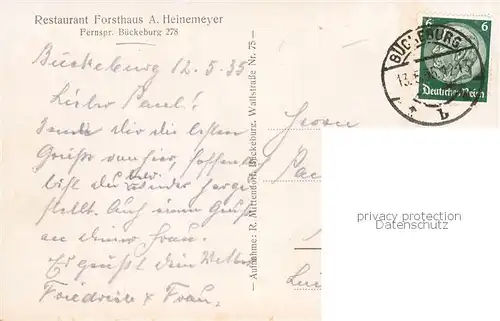 Restaurant Forsthaus A. Heinemeyer
Fernspr. Bückeburg 278
Bückeburg 12.5.35
Lieber Paul!
Sende dir die besten
Grüße von hier, hoffentl.
bist du wieder herge-
stellt. Auch einen Gruß
an deine Frau.
Es grüßt dein Vetter
Friedrich & Frau.
Aufnahme: R. Mittendorf, Bückeburg, Wallstraße Nr. 75
Herrn
6 6
Deutsches Reich
BÜCKEBURG
13.5
b
privacy protection
Datenschutz